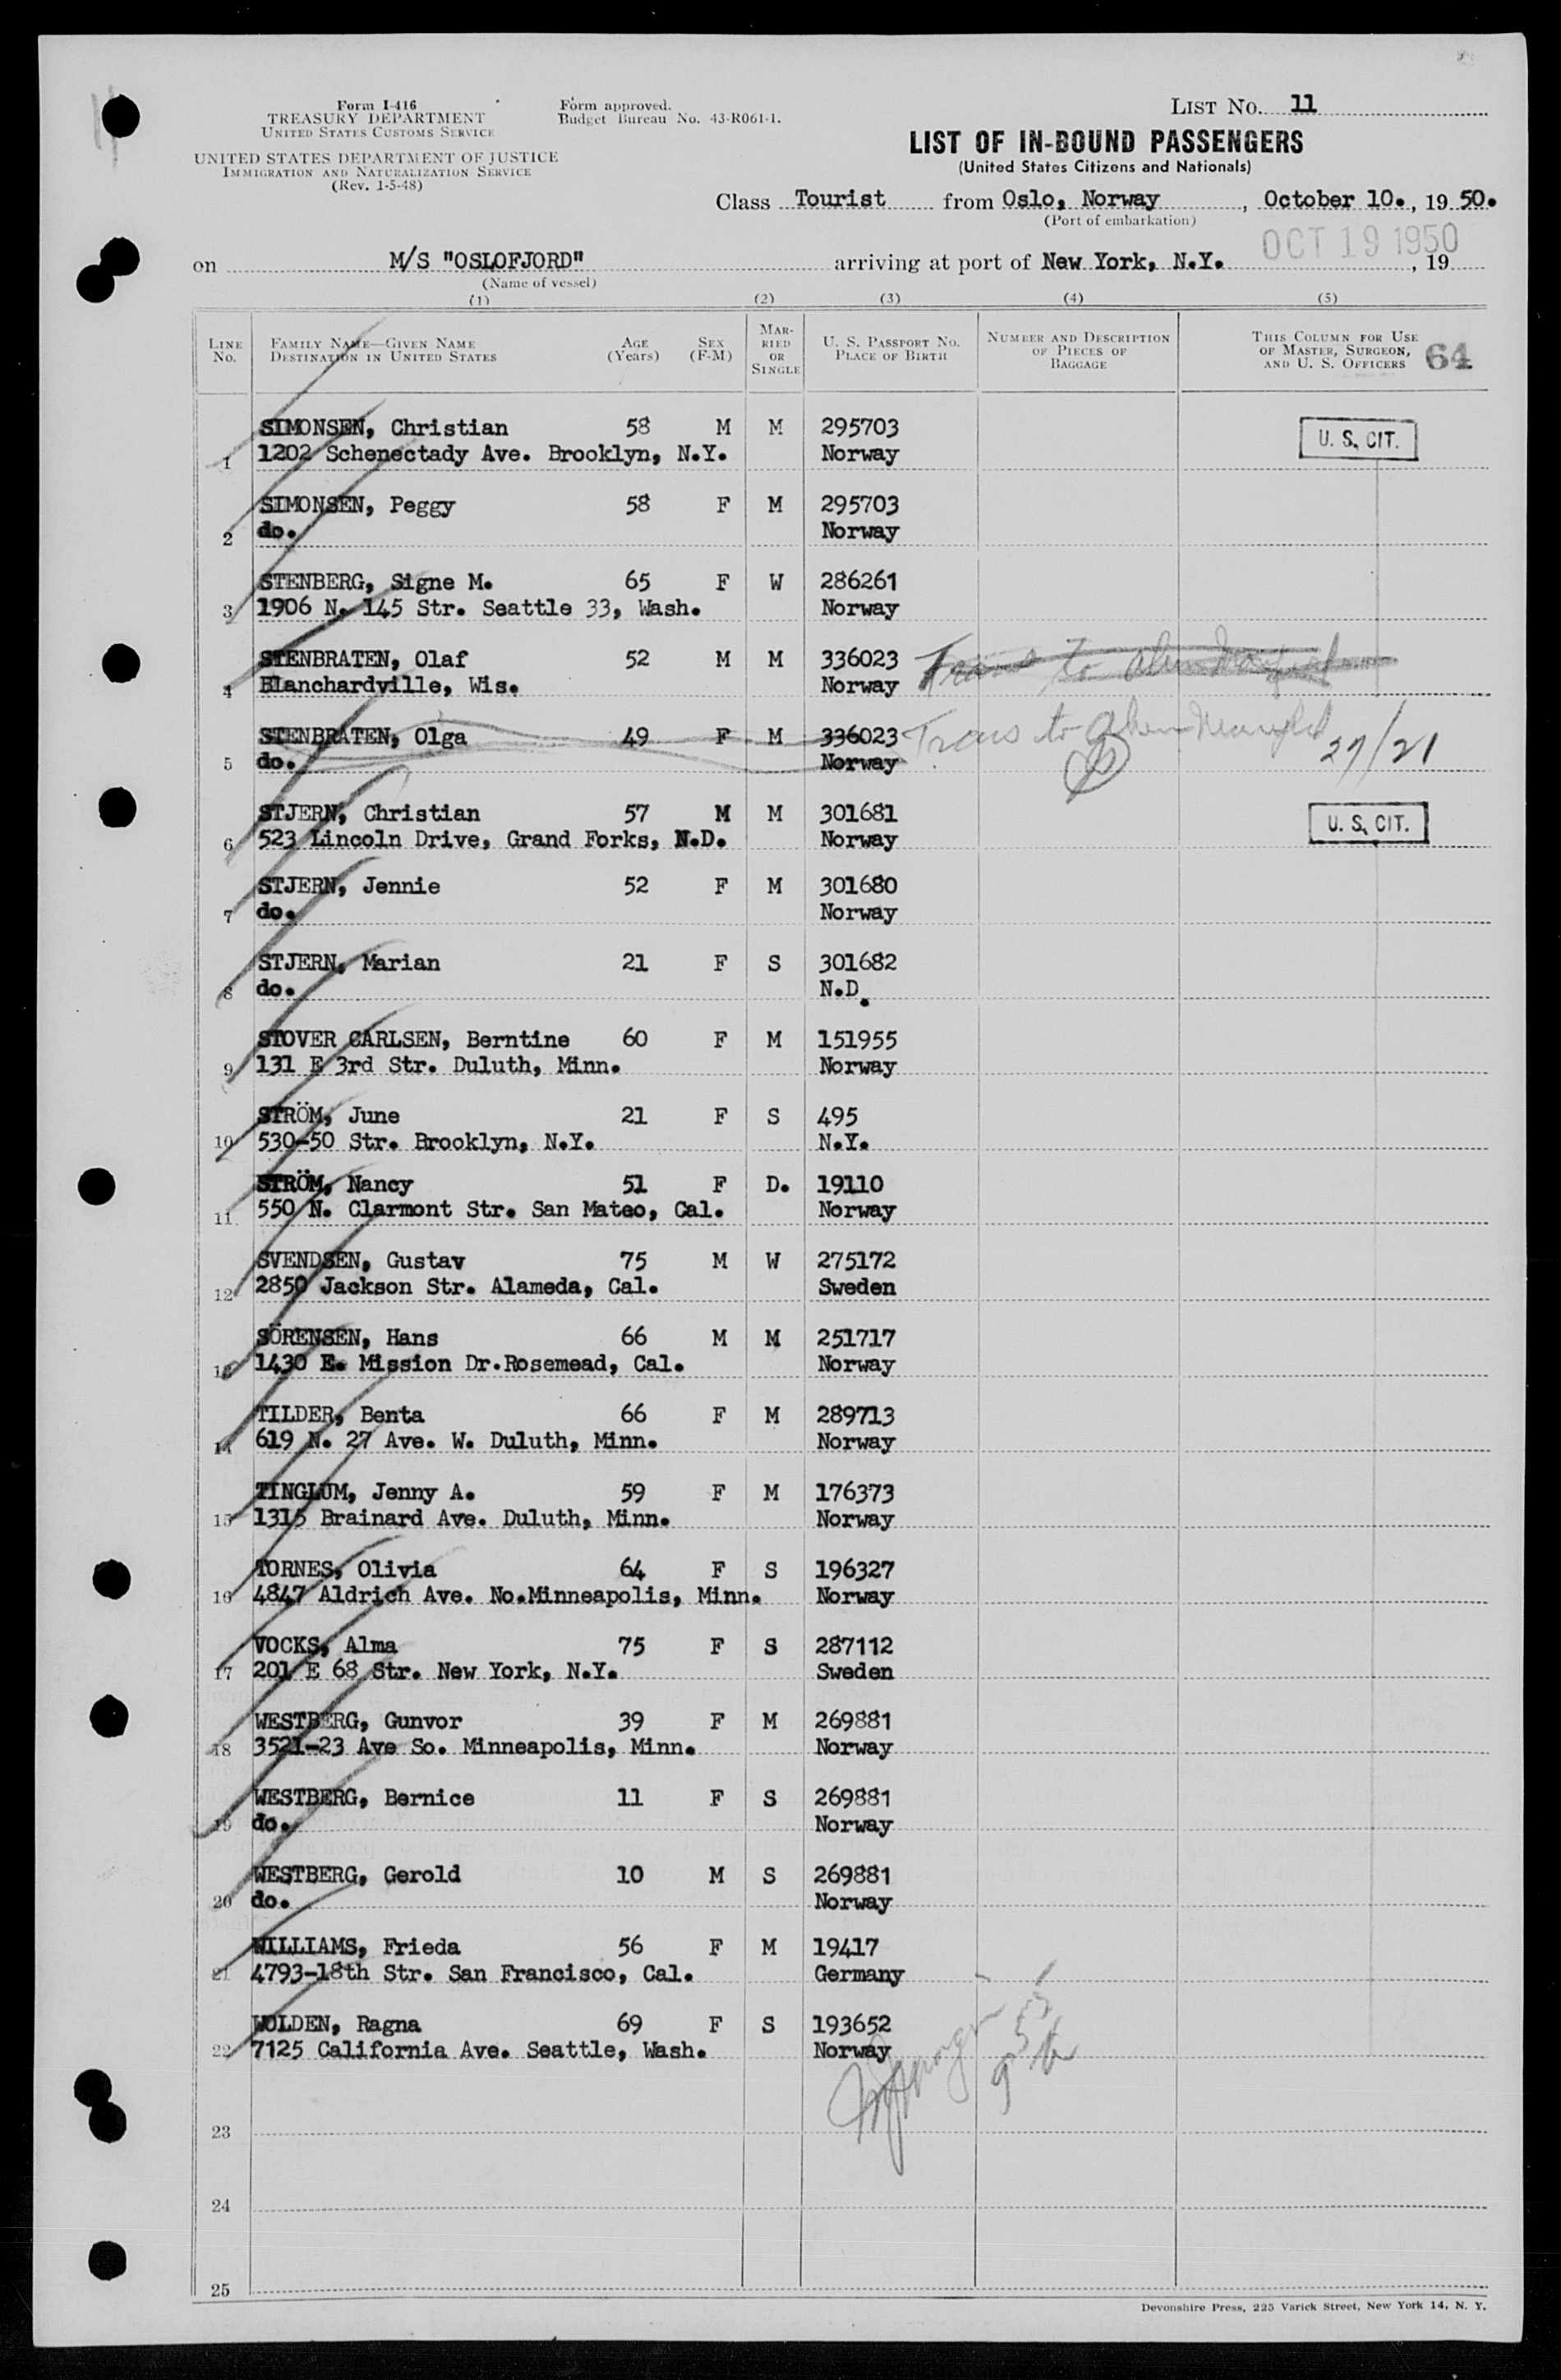 Form I-416
TREASURY DEPARTMENT
UNITED STATES CUSTOMS SERVICE
UNITED STATES DEPARTMENT OF JUSTICE
IMMIGRATION AND NATURALIZATION SERVICE
(Rev. 1-5-48)
Form approved.
Budget Bureau No. 43-R061-1.
LIST NO. 11
LIST OF IN-BOUND PASSENGERS
(United States Citizens and Nationals)
Class Tourist from Oslo, Norway, October 10., 1950.
(Port of embarkation)
OCT 19 1950
on M/S "OSLOFJORD" arriving at port of New York, N.Y., 19
(Name of vessel)
(1) (2) (3) (4) (5)
LINE NO. FAMILY NAME—GIVEN NAME DESTINATION IN UNITED STATES AGE (Years) SEX (F-M) MARRIED OR SINGLE U. S. PASSPORT NO. PLACE OF BIRTH NUMBER AND DESCRIPTION OF PIECES OF BAGGAGE THIS COLUMN FOR USE OF MASTER, SURGEON, AND U. S. OFFICERS 64
SIMONSEN, Christian 58 M M 295703 U. S. CIT.
1 1202 Schenectady Ave. Brooklyn, N.Y. Norway
SIMONSEN, Peggy 58 F M 295703
2 do. Norway
STENBERG, Signe M. 65 F W 286261
3 1906 N. 145 Str. Seattle 33, Wash. Norway
STENBRATEN, Olaf 52 M M 336023 Trans to alien
4 Blanchardville, Wis. Norway
STENBRATEN, Olga 49 F M 336023 Trans to alien
5 do. Norway 27/21
STJERN, Christian 57 M M 301681 U. S. CIT.
6 523 Lincoln Drive, Grand Forks, N.D. Norway
STJERN, Jennie 52 F M 301680
7 do. Norway
STJERN, Marian 21 F S 301682
8 do. N.D.
STOVER CARLSEN, Berntine 60 F M 151955
9 131 E 3rd Str. Duluth, Minn. Norway
STRÖM, June 21 F S 495
10 530-50 Str. Brooklyn, N.Y. N.Y.
STRÖM, Nancy 51 F D. 19110
11 550 N. Clarmont Str. San Mateo, Cal. Norway
SVENDSEN, Gustav 75 M W 275172
12 2850 Jackson Str. Alameda, Cal. Sweden
SÖRENSEN, Hans 66 M M 251717
13 1430 E. Mission Dr.Rosemead, Cal. Norway
TILDER, Benta 66 F M 289713
14 619 N. 27 Ave. W. Duluth, Minn. Norway
TINGLUM, Jenny A. 59 F M 176373
15 1315 Brainard Ave. Duluth, Minn. Norway
TORNES, Olivia 64 F S 196327
16 4847 Aldrich Ave. No.Minneapolis, Minn. Norway
VOCKS, Alma 75 F S 287112
17 201 E 68 Str. New York, N.Y. Sweden
WESTBERG, Gunvor 39 F M 269881
18 3521-23 Ave So. Minneapolis, Minn. Norway
WESTBERG, Bernice 11 F S 269881
19 do. Norway
WESTBERG, Gerold 10 M S 269881
20 do. Norway
WILLIAMS, Frieda 56 F M 19417
21 4793-18th Str. San Francisco, Cal. Germany
WOLDEN, Ragna 69 F S 193652
22 7125 California Ave. Seattle, Wash. Norway
23
24
25
Devonshire Press, 225 Varick Street, New York 14, N. Y.